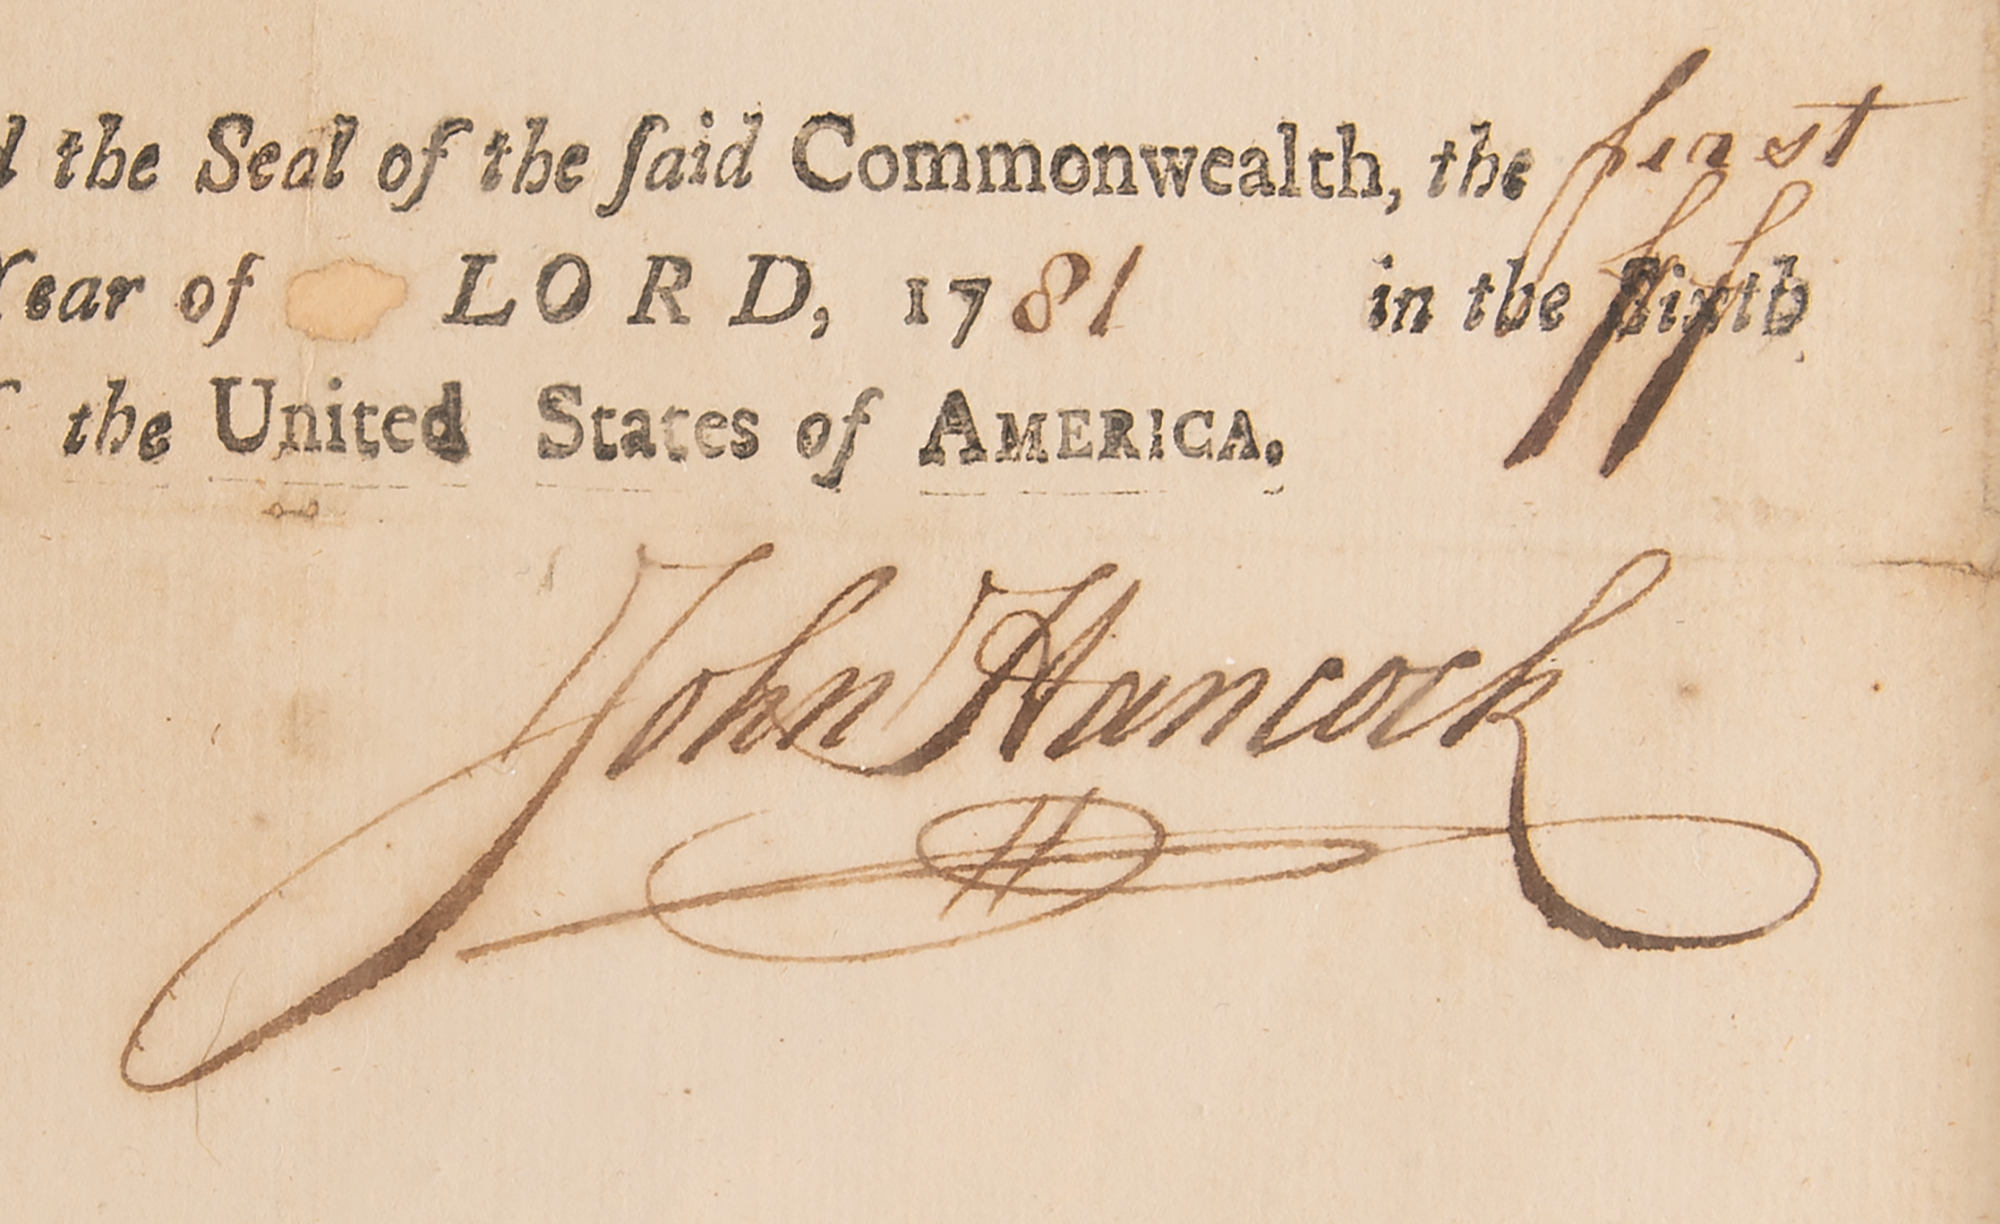 the Seal of the ſaid Commonwealth, the first
Year of LORD, 1781 in the
the United States of AMERICA.
John Hancock